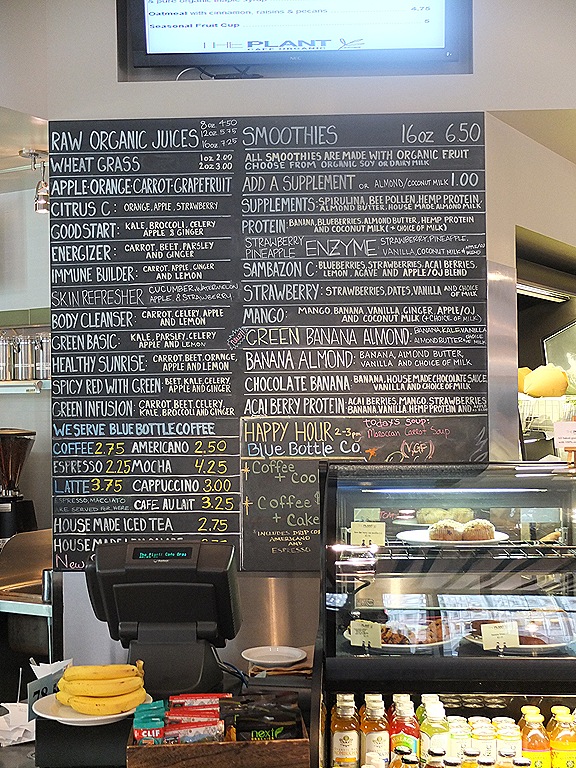 & pure organic maple syrup
Oatmeal with cinnamon, raisins & pecans 4.75
Seasonal Fruit Cup 5
THE PLANT
CAFE ORGANIC
RAW ORGANIC JUICES 8oz 4.50
12oz 5.75
16oz 7.25
WHEAT GRASS 1oz 2.00
2oz 3.00
APPLE·ORANGE·CARROT·GRAPEFRUIT
CITRUS C: ORANGE, APPLE, STRAWBERRY
GOOD START: KALE, BROCCOLI, CELERY
APPLE & GINGER
ENERGIZER: CARROT, BEET, PARSLEY
AND GINGER
IMMUNE BUILDER: CARROT, APPLE, GINGER
AND LEMON
SKIN REFRESHER CUCUMBER, WATERMELON
APPLE, & STRAWBERRY
BODY CLEANSER: CARROT, CELERY, APPLE
AND LEMON
GREEN BASIC: KALE, PARSLEY, CELERY
APPLE AND LEMON
HEALTHY SUNRISE: CARROT, BEET, ORANGE,
APPLE AND LEMON
SPICY RED WITH GREEN: BEET, KALE, CELERY,
APPLE AND GINGER
GREEN INFUSION: CARROT, BEET, CELERY,
KALE, BROCCOLI AND GINGER
WE SERVE BLUE BOTTLE COFFEE
COFFEE 2.75 AMERICANO 2.50
ESPRESSO 2.25 MOCHA 4.25
LATTE 3.75 CAPPUCCINO 3.00
ESPRESSO, MACCIATO
ARE SERVED FOR HERE. CAFE AU LAIT 3.25
HOUSE MADE ICED TEA 2.75
SMOOTHIES 16oz 6.50
ALL SMOOTHIES ARE MADE WITH ORGANIC FRUIT
CHOOSE FROM ORGANIC SOY OR DAIRY MILK
ADD A SUPPLEMENT OR ALMOND/COCONUT MILK 1.00
SUPPLEMENTS: SPIRULINA, BEE POLLEN, HEMP PROTEIN,
ALMOND BUTTER, HOUSE MADE ALMOND MILK
PROTEIN: BANANA, BLUEBERRIES, ALMOND BUTTER, HEMP PROTEIN
AND COCONUT MILK (+ CHOICE OF MILK)
STRAWBERRY
PINEAPPLE ENZYME STRAWBERRY, PINEAPPLE,
VANILLA, COCONUT MILK & APPLE/OJ BLEND
SAMBAZON C: BLUEBERRIES, STRAWBERRIES, ACAI BERRIES,
LEMON, AGAVE AND APPLE/OJ BLEND
STRAWBERRY: STRAWBERRIES, DATES, VANILLA AND CHOICE
OF MILK
MANGO: MANGO, BANANA, VANILLA, GINGER, APPLE/OJ
AND COCONUT MILK (+ CHOICE OF MILK)
GREEN BANANA ALMOND: BANANA, KALE, VANILLA
BANANA ALMOND: BANANA, ALMOND BUTTER,
VANILLA AND CHOICE OF MILK
CHOCOLATE BANANA: BANANA, HOUSE MADE CHOCOLATE SAUCE,
VANILLA AND CHOICE OF MILK
ACAI BERRY PROTEIN: ACAI BERRIES, MANGO, STRAWBERRIES
BANANA, VANILLA, HEMP PROTEIN AND
HAPPY HOUR 2-3pm
Blue Bottle Co.
Coffee
+ Coo
Coffee
+ Cake
*INCLUDES DRIP COFFEE
AMERICANO
AND
ESPRESSO
today's soup:
Moroccan Carrot Soup
(V, GF)
The Plant Cafe Orga
CLIF
next